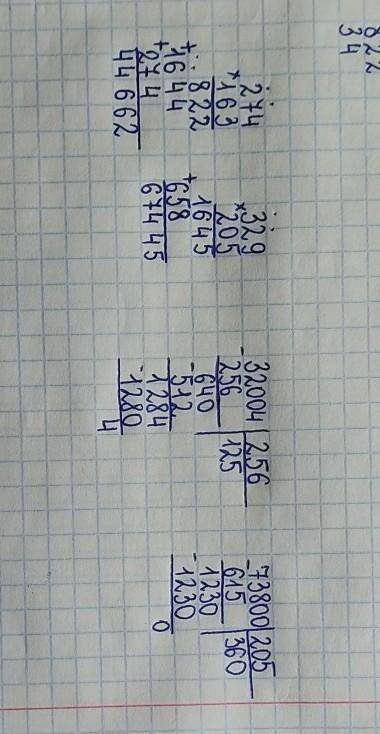 822
34
274
×163
822
+1644
+274
44662
329
×205
1645
+658
67445
-32004 | 256
256 | 125
640
-512
1284
-1280
4
-73800 | 205
615 | 360
1230
-1230
0